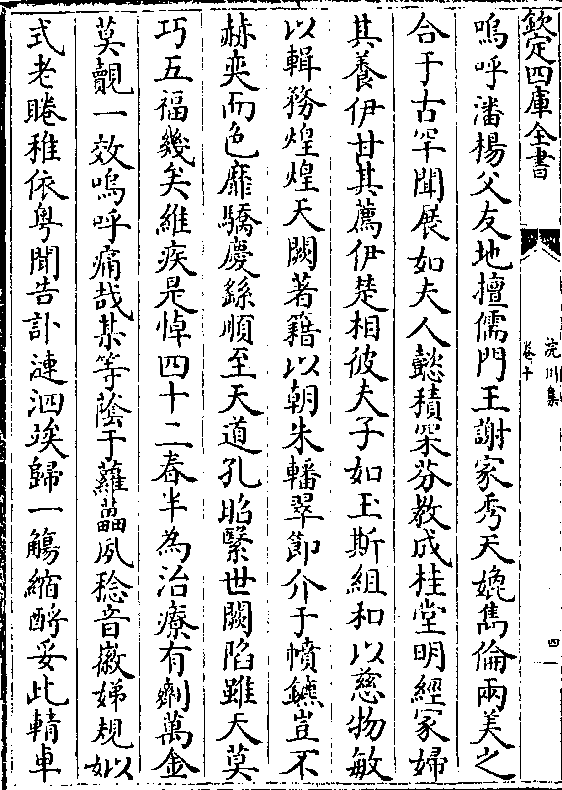 欽定四庫全書
浣川集
卷十
四一
嗚呼潘楊父友地擅儒門王謝家秀天媲雋倫兩美之
合于古罕聞展如夫人懿積深芬教成桂堂明經家婦
其養伊甘其薦伊楚相彼夫子如玉斯組和以慈物敏
以輯務煌煌天闕著籍以朝朱轓翠節介于幩鑣豈不
赫奕而色靡驕慶繇順至天道孔昭繄世闕陷雖天莫
巧五福幾矣維疾是悼四十二春半為治療有劑萬金
莫覿一效嗚呼痛哉某等蔭于蘿藟夙稔音徽娣規如以
式老睠稚依粵聞告訃漣洏竢歸一觴縮酹妥此輤車